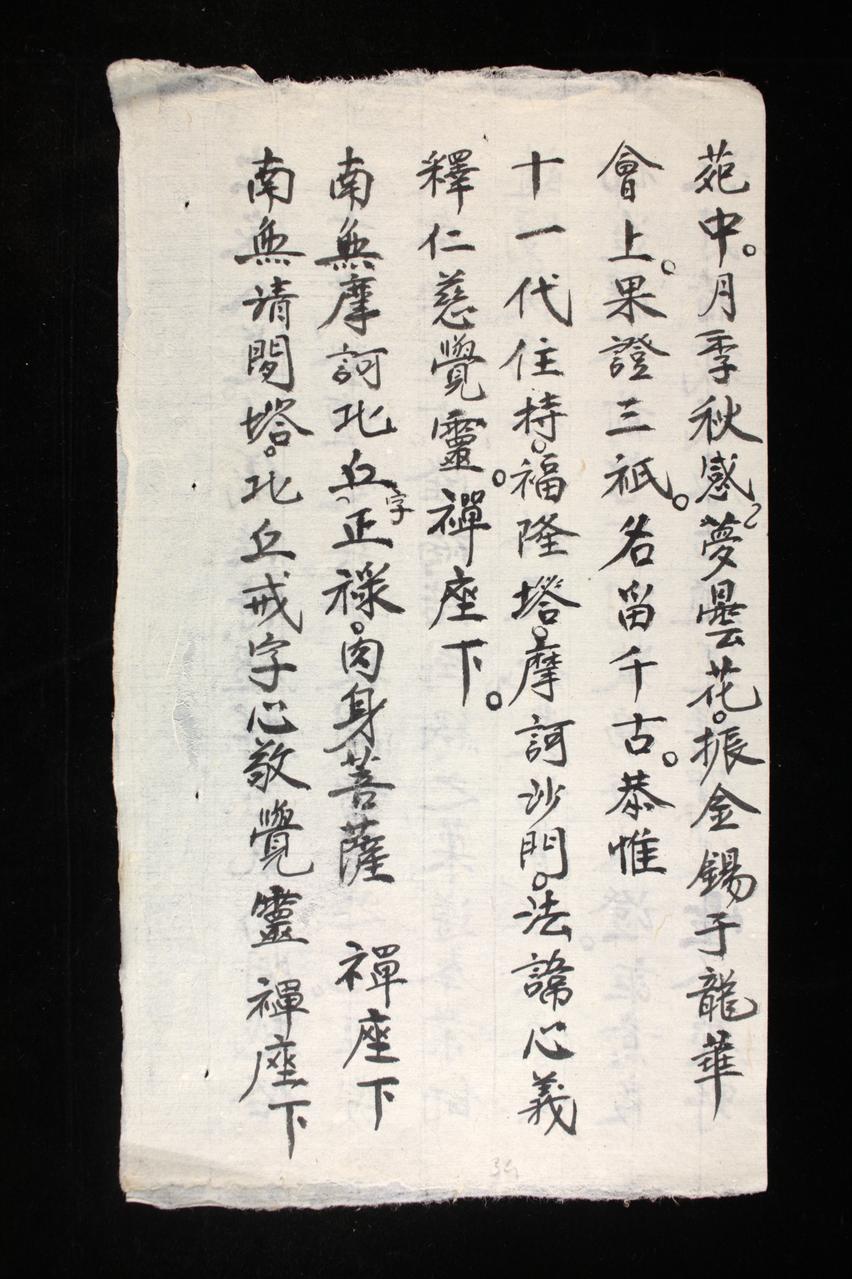 苑中。月季秋感夢曇花。振金錫于龍華
會上。果證三祇。名留千古。恭惟
十一代住持。福隆塔。摩訶沙門。法諱心義
釋仁慈覺靈。禪座下。
南無摩訶比丘字正祿。肉身菩薩 禪座下
南無請閱塔。比丘戒字心敬覺靈 禪座下